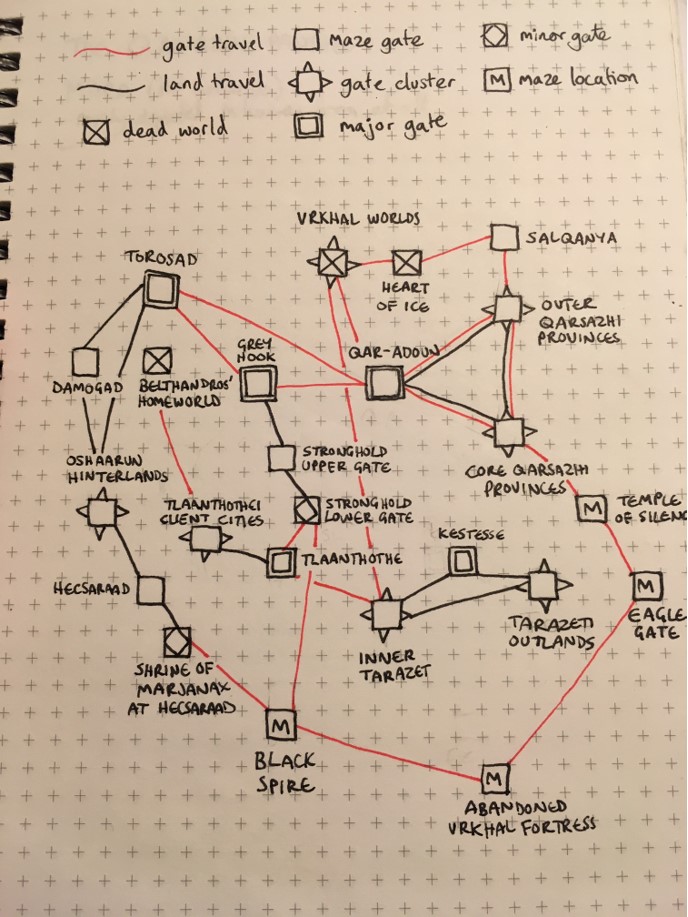 gate travel
Maze gate
minor gate
land travel
gate cluster
M
maze location
dead world
major gate
VRKHAL WORLDS
SALQANYA
TOROSAD
HEART
OF ICE
OUTER
QARSAZHI
PROVINCES
GREY
HOOK
QAR-ADOUN
DAMOGAD
BELTHANDROS'
HOMEWORLD
OSHAARUN
HINTERLANDS
STRONGHOLD
UPPER GATE
CORE QARSAZHI
PROVINCES
TLAANTHOTHEI
CLIENT CITIES
STRONGHOLD
LOWER GATE
M
TEMPLE
OF SILENC
KESTESSE
TLAANTHOTHE
HECSARAAD
M
EAGLE
GATE
TARAZETI
OUTLANDS
INNER
TARAZET
SHRINE OF
MARJANAX
AT HECSARAAD
M
BLACK
SPIRE
M
ABANDONED
VRKHAL FORTRESS